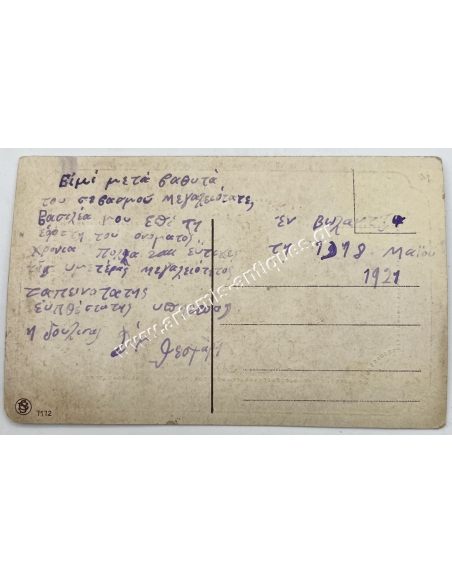 Είμί μετά βαθυτά
του σεβασμού μεγαλειότατε,
Βασιλέα μου Εθί τη
εορτη του ονόματος
χρονια πολλα και εύτυχες
της υμετέρας μεγαλειοτητος
ταπεινοτατης
ευπηθέστατης
η δουλισας
Εν
τη 18 Μαΐου
1921
1112
www.artemis-antiques.gr